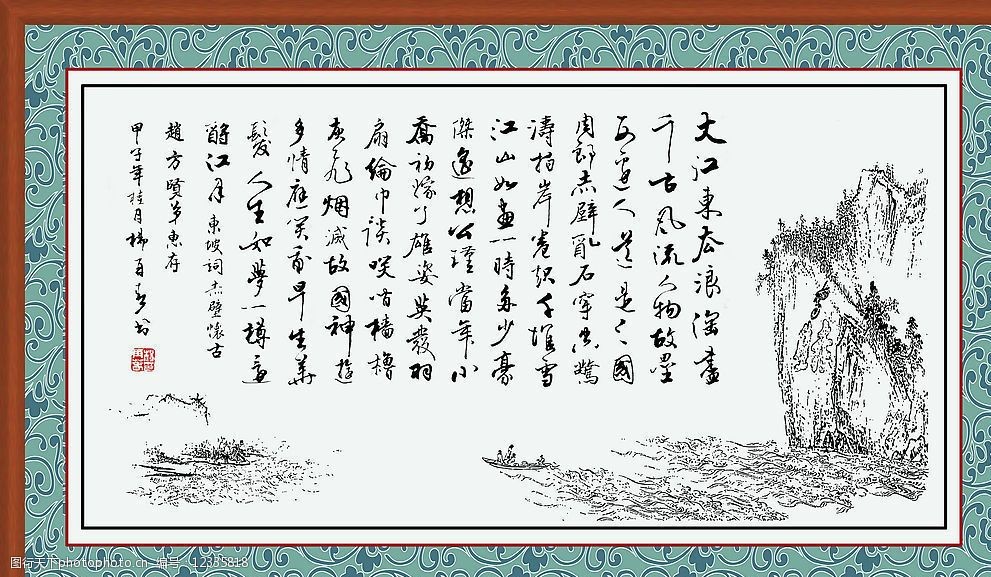 大江東去浪淘盡
千古風流人物故壘
西邊人道是三國
周郎赤壁亂石穿空驚
濤拍岸卷起千堆雪
江山如畫一時多少豪
傑遙想公瑾當年小
喬初嫁了雄姿英發羽
扇綸巾談咲間檣櫓
灰飛烟滅故國神遊
多情應笑我早生華
髮人生如夢一樽還
酹江月 東坡詞赤壁懷古
趙方賢弟惠存
甲子年桂月楊再春書
图行天下photophoto.cn 编号：12335818